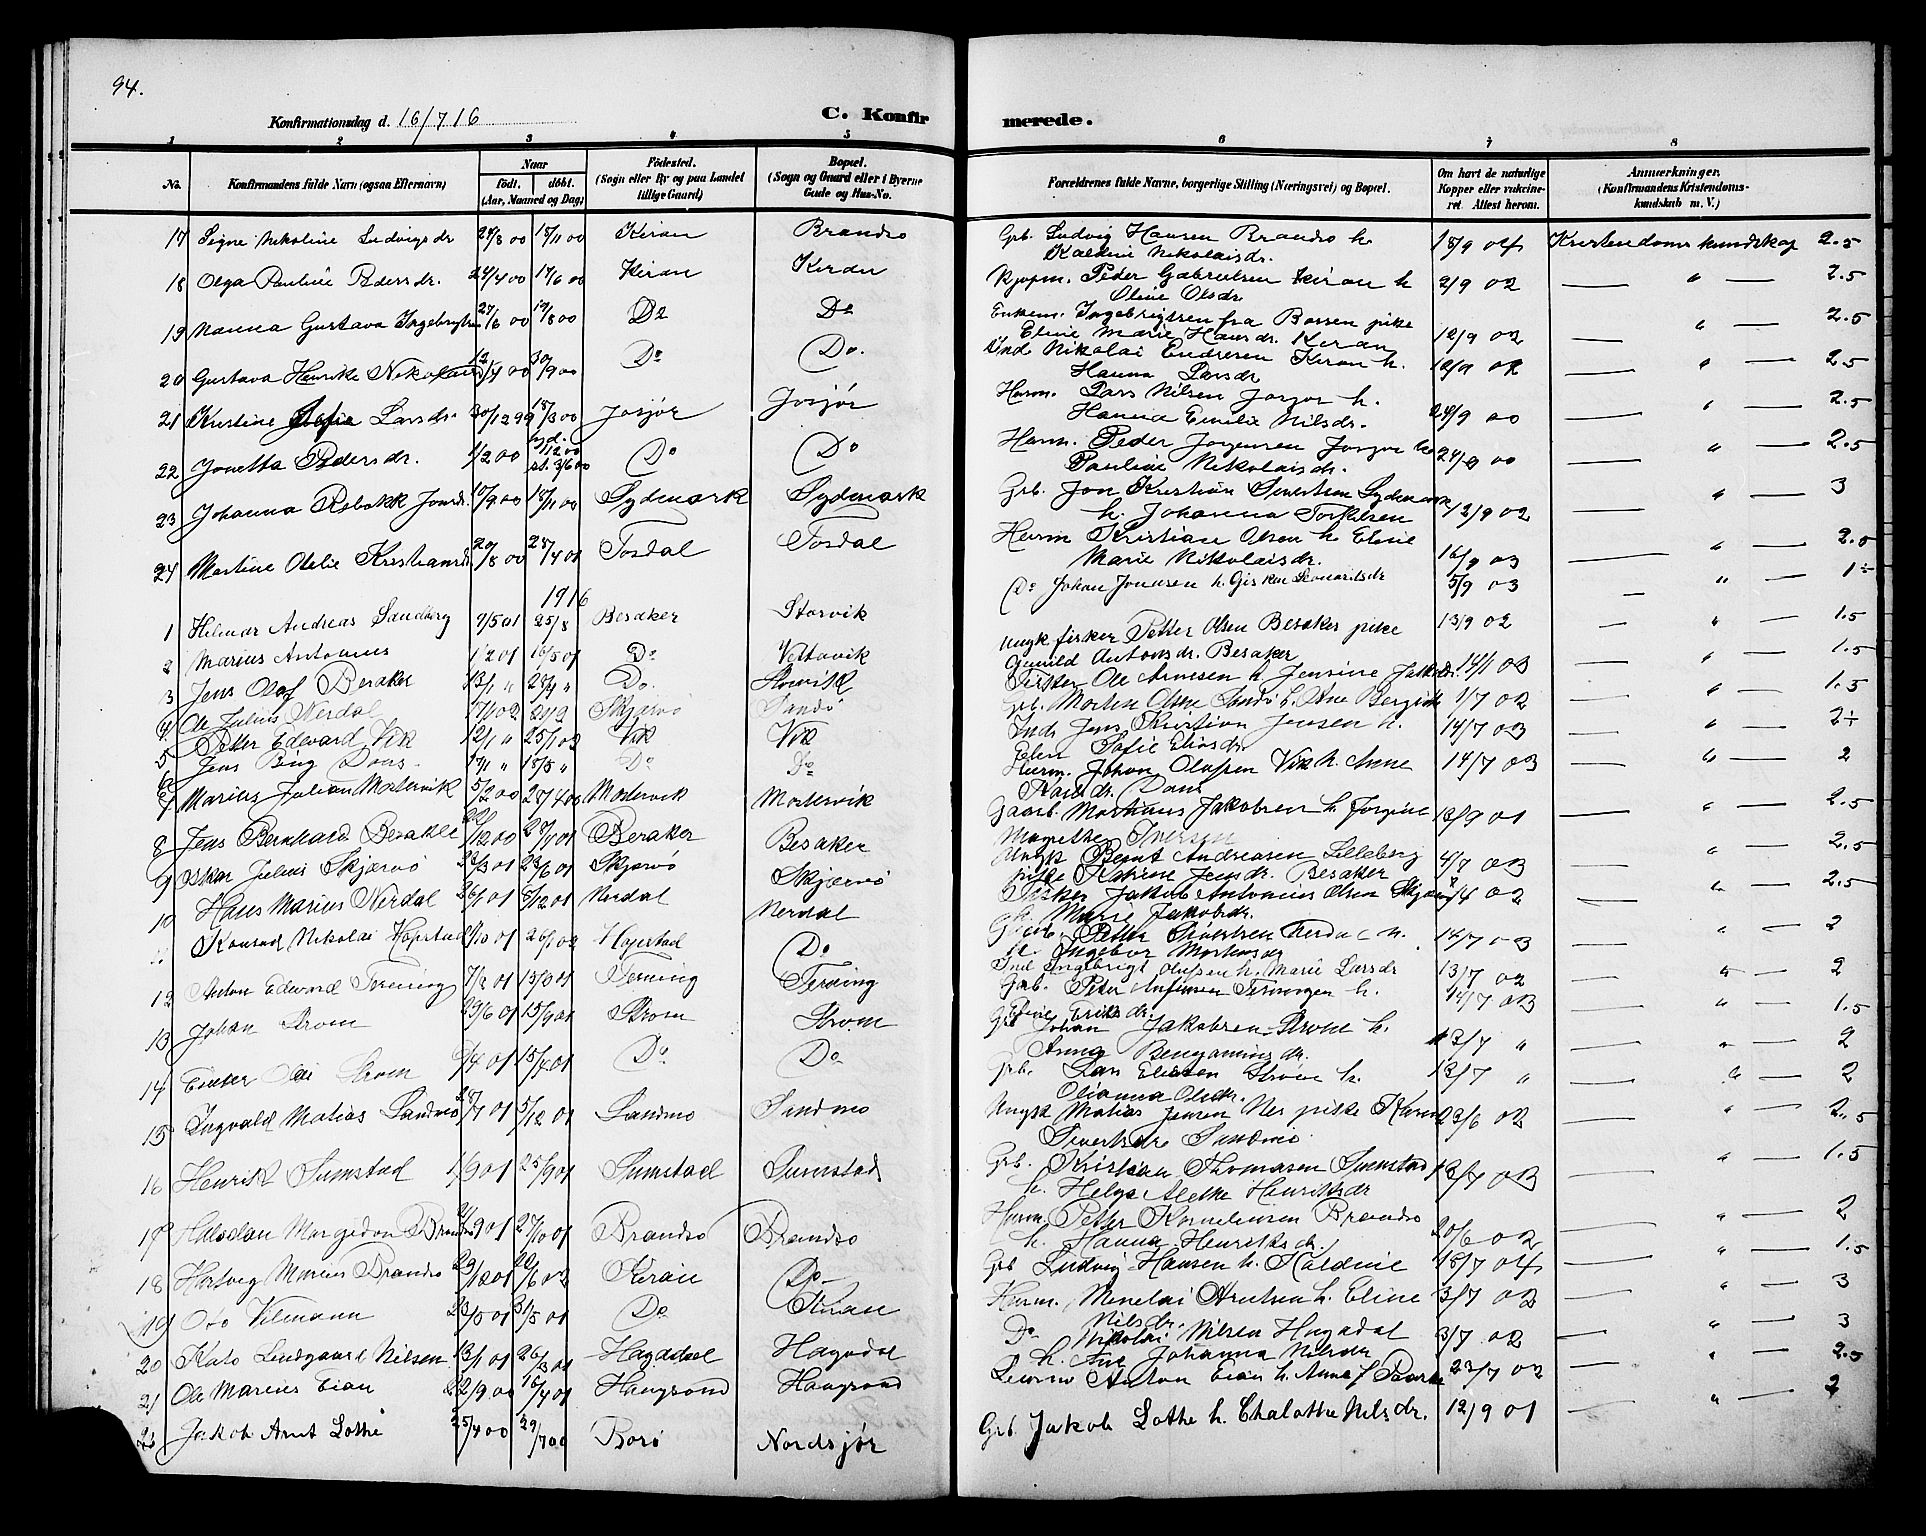 94.
Konfirmationsdag d. 16/7 16
C. Konfirmerede.
1 2 3 4 5 6 7 8
No. Konfirmandens fulde Navn (ogsaa Efternavn) Naar født. døbt. (Aar, Maaned og Dag) Fødested. (Sogn eller By og paa Landet tillige Gaard) Bopæl. (Sogn og Gaard eller i Byerne Gade og Hus-No. Forældrenes fulde Navne, borgerlige Stilling (Næringsvei) og Bopæl. Om havt de naturlige Kopper eller vakcineret. Attest herom. Anmærkninger. (Konfirmandens Kristendomskundskab m. V.)
17 Signe Nikoline Ludvigsdr 18/11 00 Kiran Brandsø Grb. Ludvig Hansen Brandsø h. Kaldine Nikolaisdr. 18/9 04 Kristendomskundskap 2.5
18 Olga Pauline Pedersdr. 24/4 00 17/6 00 Kiran Kiran Kjøpm. Peder Gabrielsen Kiran h Oline Olsdr. 2/9 02 — " — 2.5
19 Nanna Gustava Ingebrigtsen 27/6 00 19/8 00 Do Do Enkem. Ingebrigtsen fra Bossen pike Eline Marie Hansdr. Kiran 12/9 02 — " — 2.5
20 Gustava Henrikke 12/4 00 30/9 00 Do Do. Ind. Nikolai Endresen Kiran h. Hanna Larsdr 12/9 02 — " — 2.5
21 Kristine Sofie Larsdr. 30/12 99 18/3 00 Josjør Josjør Husm. Lars Nilsen Josjør h. Hanna Emilie Nilsdr. 24/9 00 — " — 2.5
22 Jonetta Pedersdr. 1/2 00 st. 3/6 00 Do Do Husm. Peder Jørgensen Josjør h. Pauline Nikolaisdr. 24/9 00 — " — 2.5
23 Johanna Rebekk Jonsdr. 17/9 00 18/11 00 Sydmark Sydmark Grb. Jon Kristian Sivertsen Sydmark h. Johanna Torkilsen 12/9 02 — " — 3
24 Martine Otelie Kristiansdr. 20/8 00 28/4 01 Tosdal Tosdal Husm Kristian Olsen h. Eline Marie Nikolaisdr. 16/9 03 — " — 2.5
1916
1 Hilmar Andreas Sandberg 2/5 01 25/8 Besaker Storvik Do Johan Jonasen h. Giskin Leonardsdr 5/9 03 — " — 1÷
2 Marius Antonius 1/2 01 16/5 01 Do Vettavik Ungk fisker Petter Olsen Besaker pike Gunild Antonsdr. Besaker 13/9 02 — " — 1.5
3 Jens Olaf Besaker 13/1 " 28/4 " Do. Storvik Fisker Ole Arnesen h Jensine Jakobsdr. 14/1 03 — " — 1.5
4 Ole Julius Nerdal Skjærvø Sandø Grb. Morten Olsen Sandø h. Ane Bergitte 1/7 02 — " — 1.5
5 Petter Edvard Vik 12/1 " 25/1 02 Vik Vik Ind. Jens Kristian Jensen h. Sofie Eliasdr. 14/7 03 — " — 2÷
6 Jens Bing Daas. 17/1 " 18/5 " Do Do Husm. Johan Olufsen Vik h. Anne 14/7 03 — " — 2
7 Marius Julian Mostervik 5/2 00 28/4 00 Mostervik Mostervik Gaarb. Martinus Jakobsen h. Jorgine Magrethe Iversen 13/9 01 — " — 2.5
8 Jens Bernhard Besaker 22/12 00 28/4 01 Besaker Besaker Ungk Bernt Andreasen Lilleberg pike Katrine Jensdr. Besaker 4/7 03 — " — 2.5
9 Oskar Julius Skjærvø 23/3 01 23/6 01 Skjærvø Skjærvø Fisker Jakob Antonius Olsen Skjærvø h. Marie Jakobsdr. /4 02 — " — 2.5
10 Hans Marius Nerdal 26/1 01 8/12 01 Nerdal Nerdal Grb. Petter Sivertsen Nerdal h. Ingebor Mortensdr 14/7 03 — " — 2
11 Konrad Nikolai Hopstad /10 01 26/1 02 Hopstad Do Ind Ingebrigt Olufsen h. Marie Larsdr 13/7 02 — " — 2
12 Anton Edvard Terning 7/2 01 13/9 01 Terning Terning Grb. Peter Terningen h. Eline Eriksdr. 14/7 03 — " — 1.5
13 Johan Strøm 23/6 01 15/9 01 Strøm Strøm Grb Johan Jakobsen Strøm h. Anna Benjaminsdr. 13/7 " — " — 2
14 Einar Olai Strøm 6/4 01 15/4 01 Do Do Grb. Lars Eliesen Strøm h. Olianna Olsdr. 13/7 " — " — 2
15 Ingvald Matias Sandmo 28/7 01 5/12 01 Sandmo Sandmo Ungk Matias Jensen Nes pike Karen Sivertsdr Sandmo 23/6 02 — " — 2.5
16 Henrik Sumstad 1/9 01 25/9 01 Sumstad Sumstad Grb. Kristian Thomasen Sumstad h. Helga Aletke Henriksdr 13/7 03 — " — 1.5
17 Halvdan Margidon Brandsø /9 01 27/10 01 Brandsø Brandsø Husm. Petter Kornelinsen Brandsø h. Hanna Henriksdr. 20/6 02 — " — 2
18 Hartvig Marius Brandsø 29/12 01 22/6 02 Kiran Do Grb Ludvig Hansen h. Kaldine 18/7 04 — " — 1.5
19 Oto Vilmann 23/5 01 31/5 01 Do Kiran Husm. Minelai Arntsen h. Eline Nilsdr. 3/7 02 — " — 3
20 Kato Lindgaard Nilsen 13/1 01 26/3 01 Hagadal Hagadal Do Nikolai Nilsen Hagadal h. Ane Johanna Nilsdr 3/7 02 — " — 3
21 Ole Marius Eian 22/9 00 16/4 01 Haugsand Haugsand Anton Eian h. Anna 23/7 02 — " — 2.5
22 Jakob Arnt Lothe 25/4 00 29/7 00 Borø Nordsjør Grb. Jakob Lothe h. Chalotte Nilsdr. 12/9 01 — " — 2